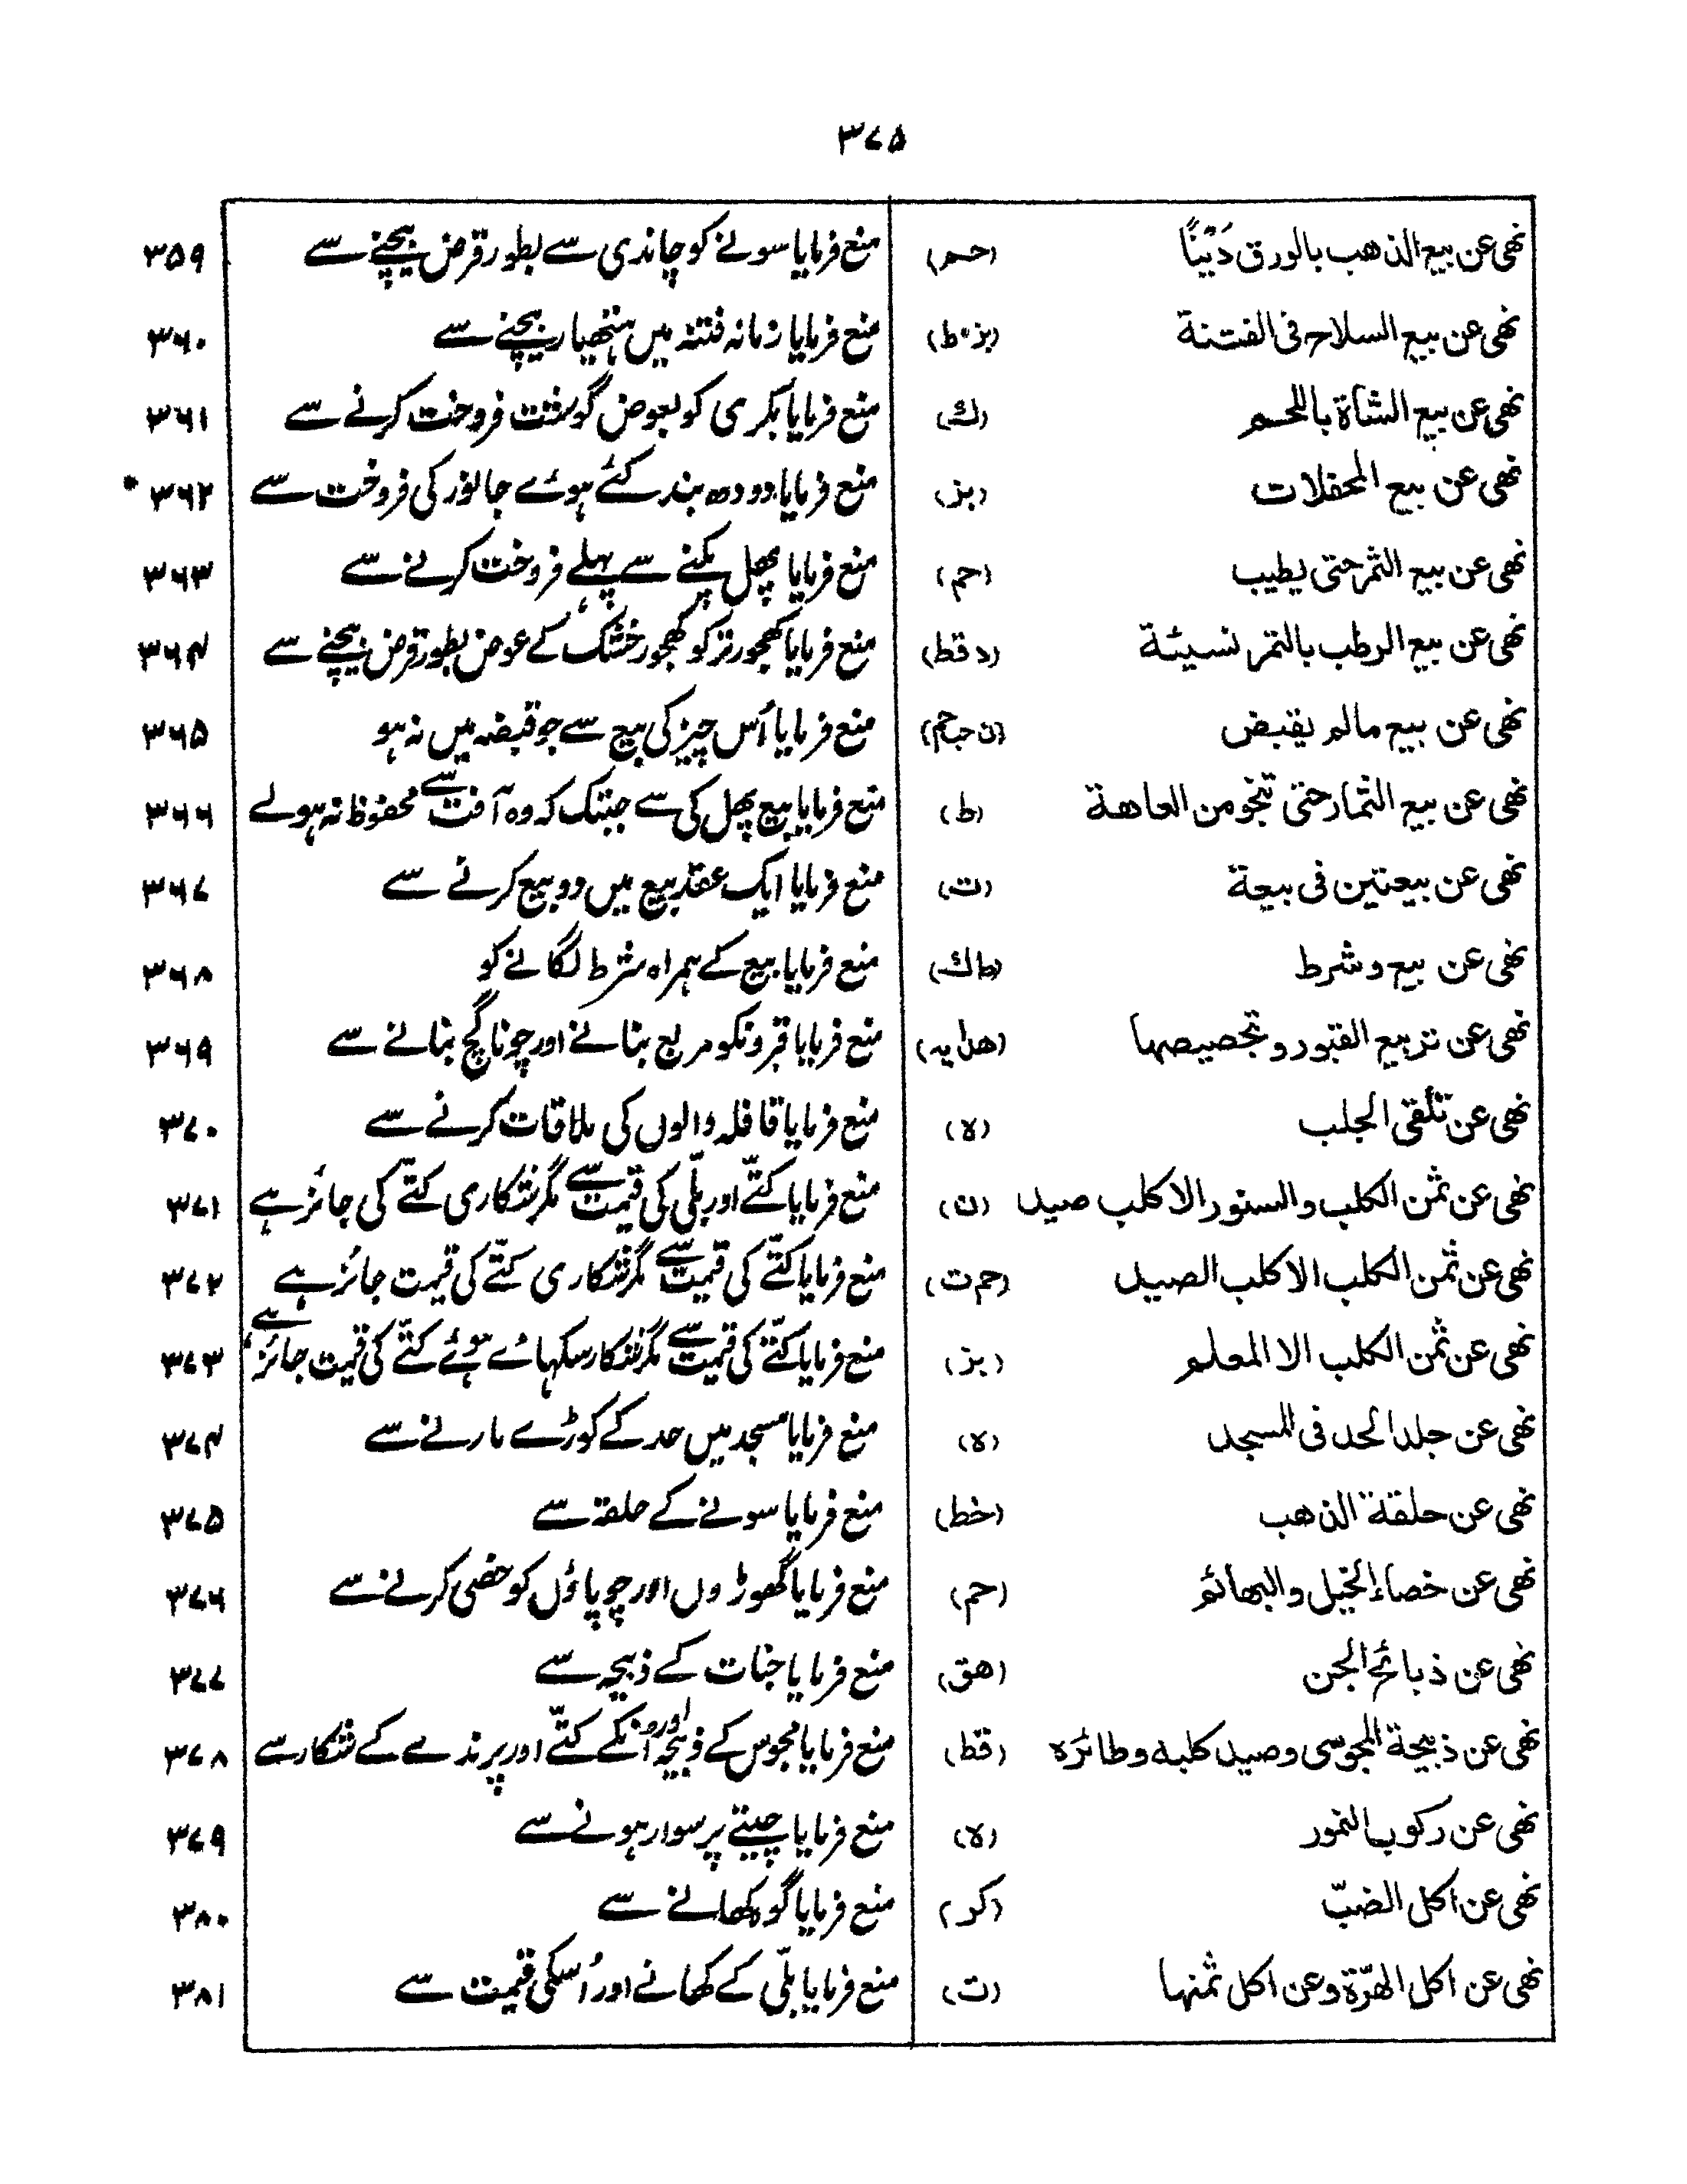 ۳۷۵
نهى عن بيع الذهب بالورق دَيْنًا (حم) منع فرمایا سونے کو چاندی سے بطور قرض بیچنے سے ۳۵۹
نهى عن بيع السلاح فى الفتنة (بز،ط) منع فرمایا زمانہ فتنہ میں ہتھیار بیچنے سے ۳۶۰
نهى عن بيع الشاة باللحم (ك) منع فرمایا بکری کو بعوض گوشت فروخت کرنے سے ۳۶۱
نهى عن بيع المحفلات (بز) منع فرمایا دودھ بند کئے ہوئے جانور کی فروخت سے ۳۶۲
نهى عن بيع الثمر حتى يطيب (حم) منع فرمایا پھل پکنے سے پہلے فروخت کرنے سے ۳۶۳
نهى عن بيع الرطب بالتمر نسيئة (د قط) منع فرمایا کھجور تر کو کھجور خشک کے عوض بطور قرض بیچنے سے ۳۶۴
نهى عن بيع مالم يقبض منع فرمایا اُس چیز کی بیع سے جو قبضہ میں نہ ہو ۳۶۵
نهى عن بيع الثمار حتى تنجو من العاهة (ط) منع فرمایا بیع پھل کی سے جبتک کہ وہ آفت سے محفوظ نہ ہولے ۳۶۶
نهى عن بيعتين فى بيعة (ت) منع فرمایا ایک عقد بیع میں دو بیع کرنے سے ۳۶۷
نهى عن بيع وشرط (طاك) منع فرمایا بیع کے ہمراہ شرط لگانے کو ۳۶۸
نهى عن تربيع القبور وتجصيصها (هدايه) منع فرمایا قبرونکو مربع بنانے اور چونا گچ بنانے سے ۳۶۹
نهى عن تلقى الجلب (ه) منع فرمایا قافلہ والوں کی ملاقات کرنے سے ۳۷۰
نهى عن ثمن الكلب والسنور الا كلب صيد (ن) منع فرمایا کتّے اور بلّی کی قیمت سے مگر شکاری کتّے کی جائز ہے ۳۷۱
نهى عن ثمن الكلب الا كلب الصيد (حم ت) منع فرمایا کتّے کی قیمت سے مگر شکاری کتّے کی قیمت جائز ہے ۳۷۲
نهى عن ثمن الكلب الا المعلم (بز) منع فرمایا کتّے کی قیمت سے مگر شکار سکہائے ہوئے کتّے کی قیمت جائز ہے ۳۷۳
نهى عن جلد الحد فى المسجد (ه) منع فرمایا مسجد میں حد کے کوڑے مارنے سے ۳۷۴
نهى عن حلقة الذهب (خط) منع فرمایا سونے کے حلقہ سے ۳۷۵
نهى عن خصاء الخيل والبهائم (حم) منع فرمایا گھوڑوں اور چوپاؤں کو خصی کرنے سے ۳۷۶
نهى عن ذبائح الجن (هق) منع فرمایا جنات کے ذبیحہ سے ۳۷۷
نهى عن ذبيحة المجوسى وصيد كلبه وطائره (قط) منع فرمایا مجوس کے ذبیحہ اور انکے کتّے اور پرندے کے شکار سے ۳۷۸
نهى عن ركوب النمور (ه) منع فرمایا چیتے پر سوار ہونے سے ۳۷۹
نهى عن اكل الضبّ (كر) منع فرمایا گوہ کھانے سے ۳۸۰
نهى عن اكل الهرّة وعن اكل ثمنها (ت) منع فرمایا بلّی کے کھانے اور اُسکی قیمت سے ۳۸۱